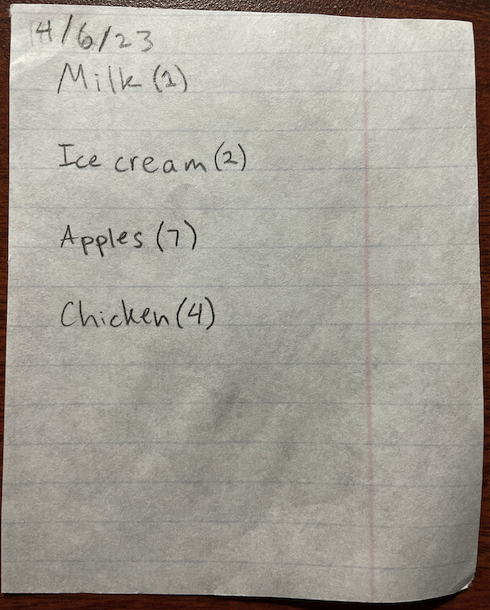 4/6/23
Milk (1)
Ice cream (2)
Apples (7)
Chicken (4)